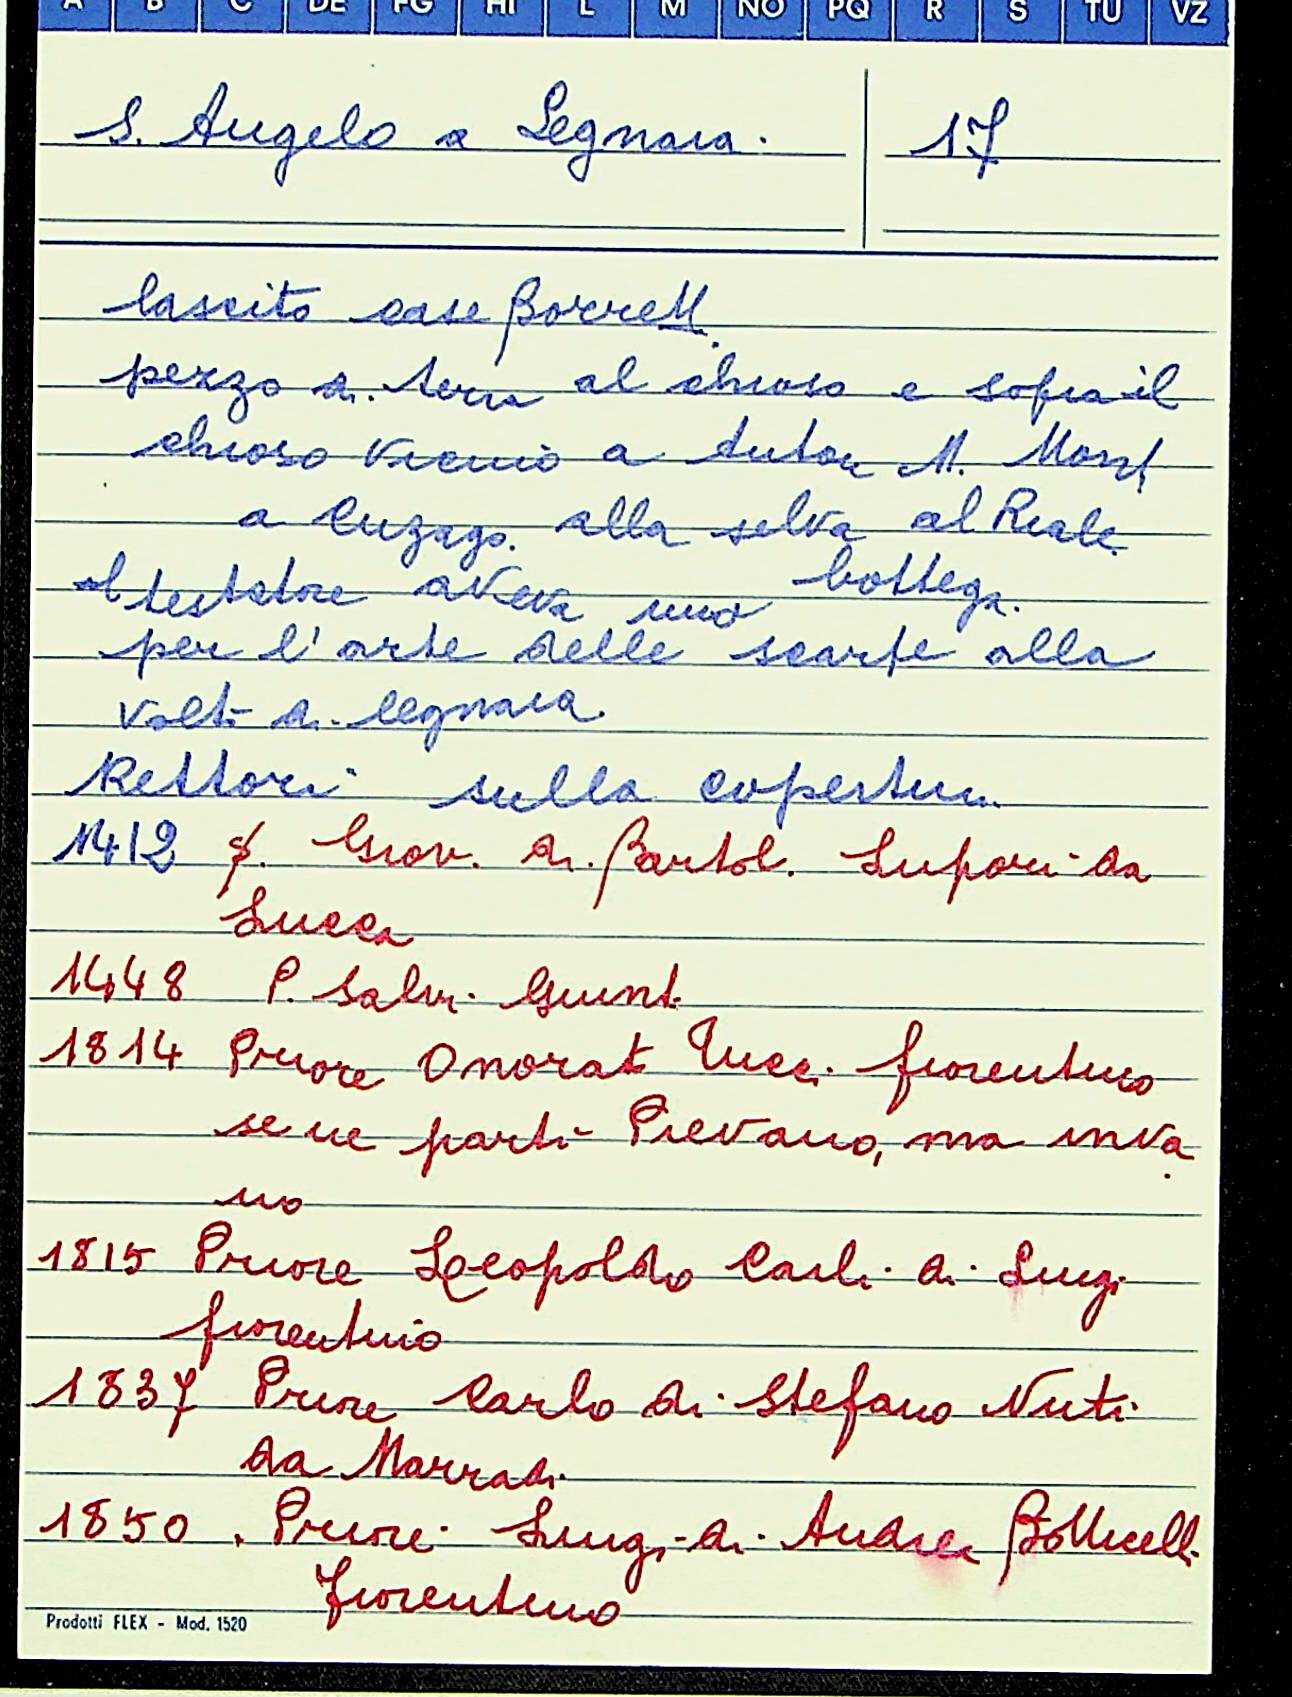 A B C DE FG HI L M NO PQ R S TU VZ
S. Angelo a Legnaia. 17
lascito case Borrell
pezzo di terra al chioso e sopra il
chioso vicino a M.
a Cuzago. alla selva al Reale
il testatore aveva una bottega.
per l'arte delle scarpe alla
volta di legnaia.
Rettori sulla copertura
1412 Giov. di Bartol. Lupori da
Lucca
1448 P. Salv. Giunt.
1814 Priore Onorat Tucci fiorentino
se ne partì Pievano, ma inva
no
1815 Priore Leopoldo Carli di Luigi
fiorentino
1837 Priore Carlo di Stefano Nuti
da Marradi
1850. Priore Luigi di Andrea Botticelli
fiorentino
Prodotti FLEX - Mod. 1520